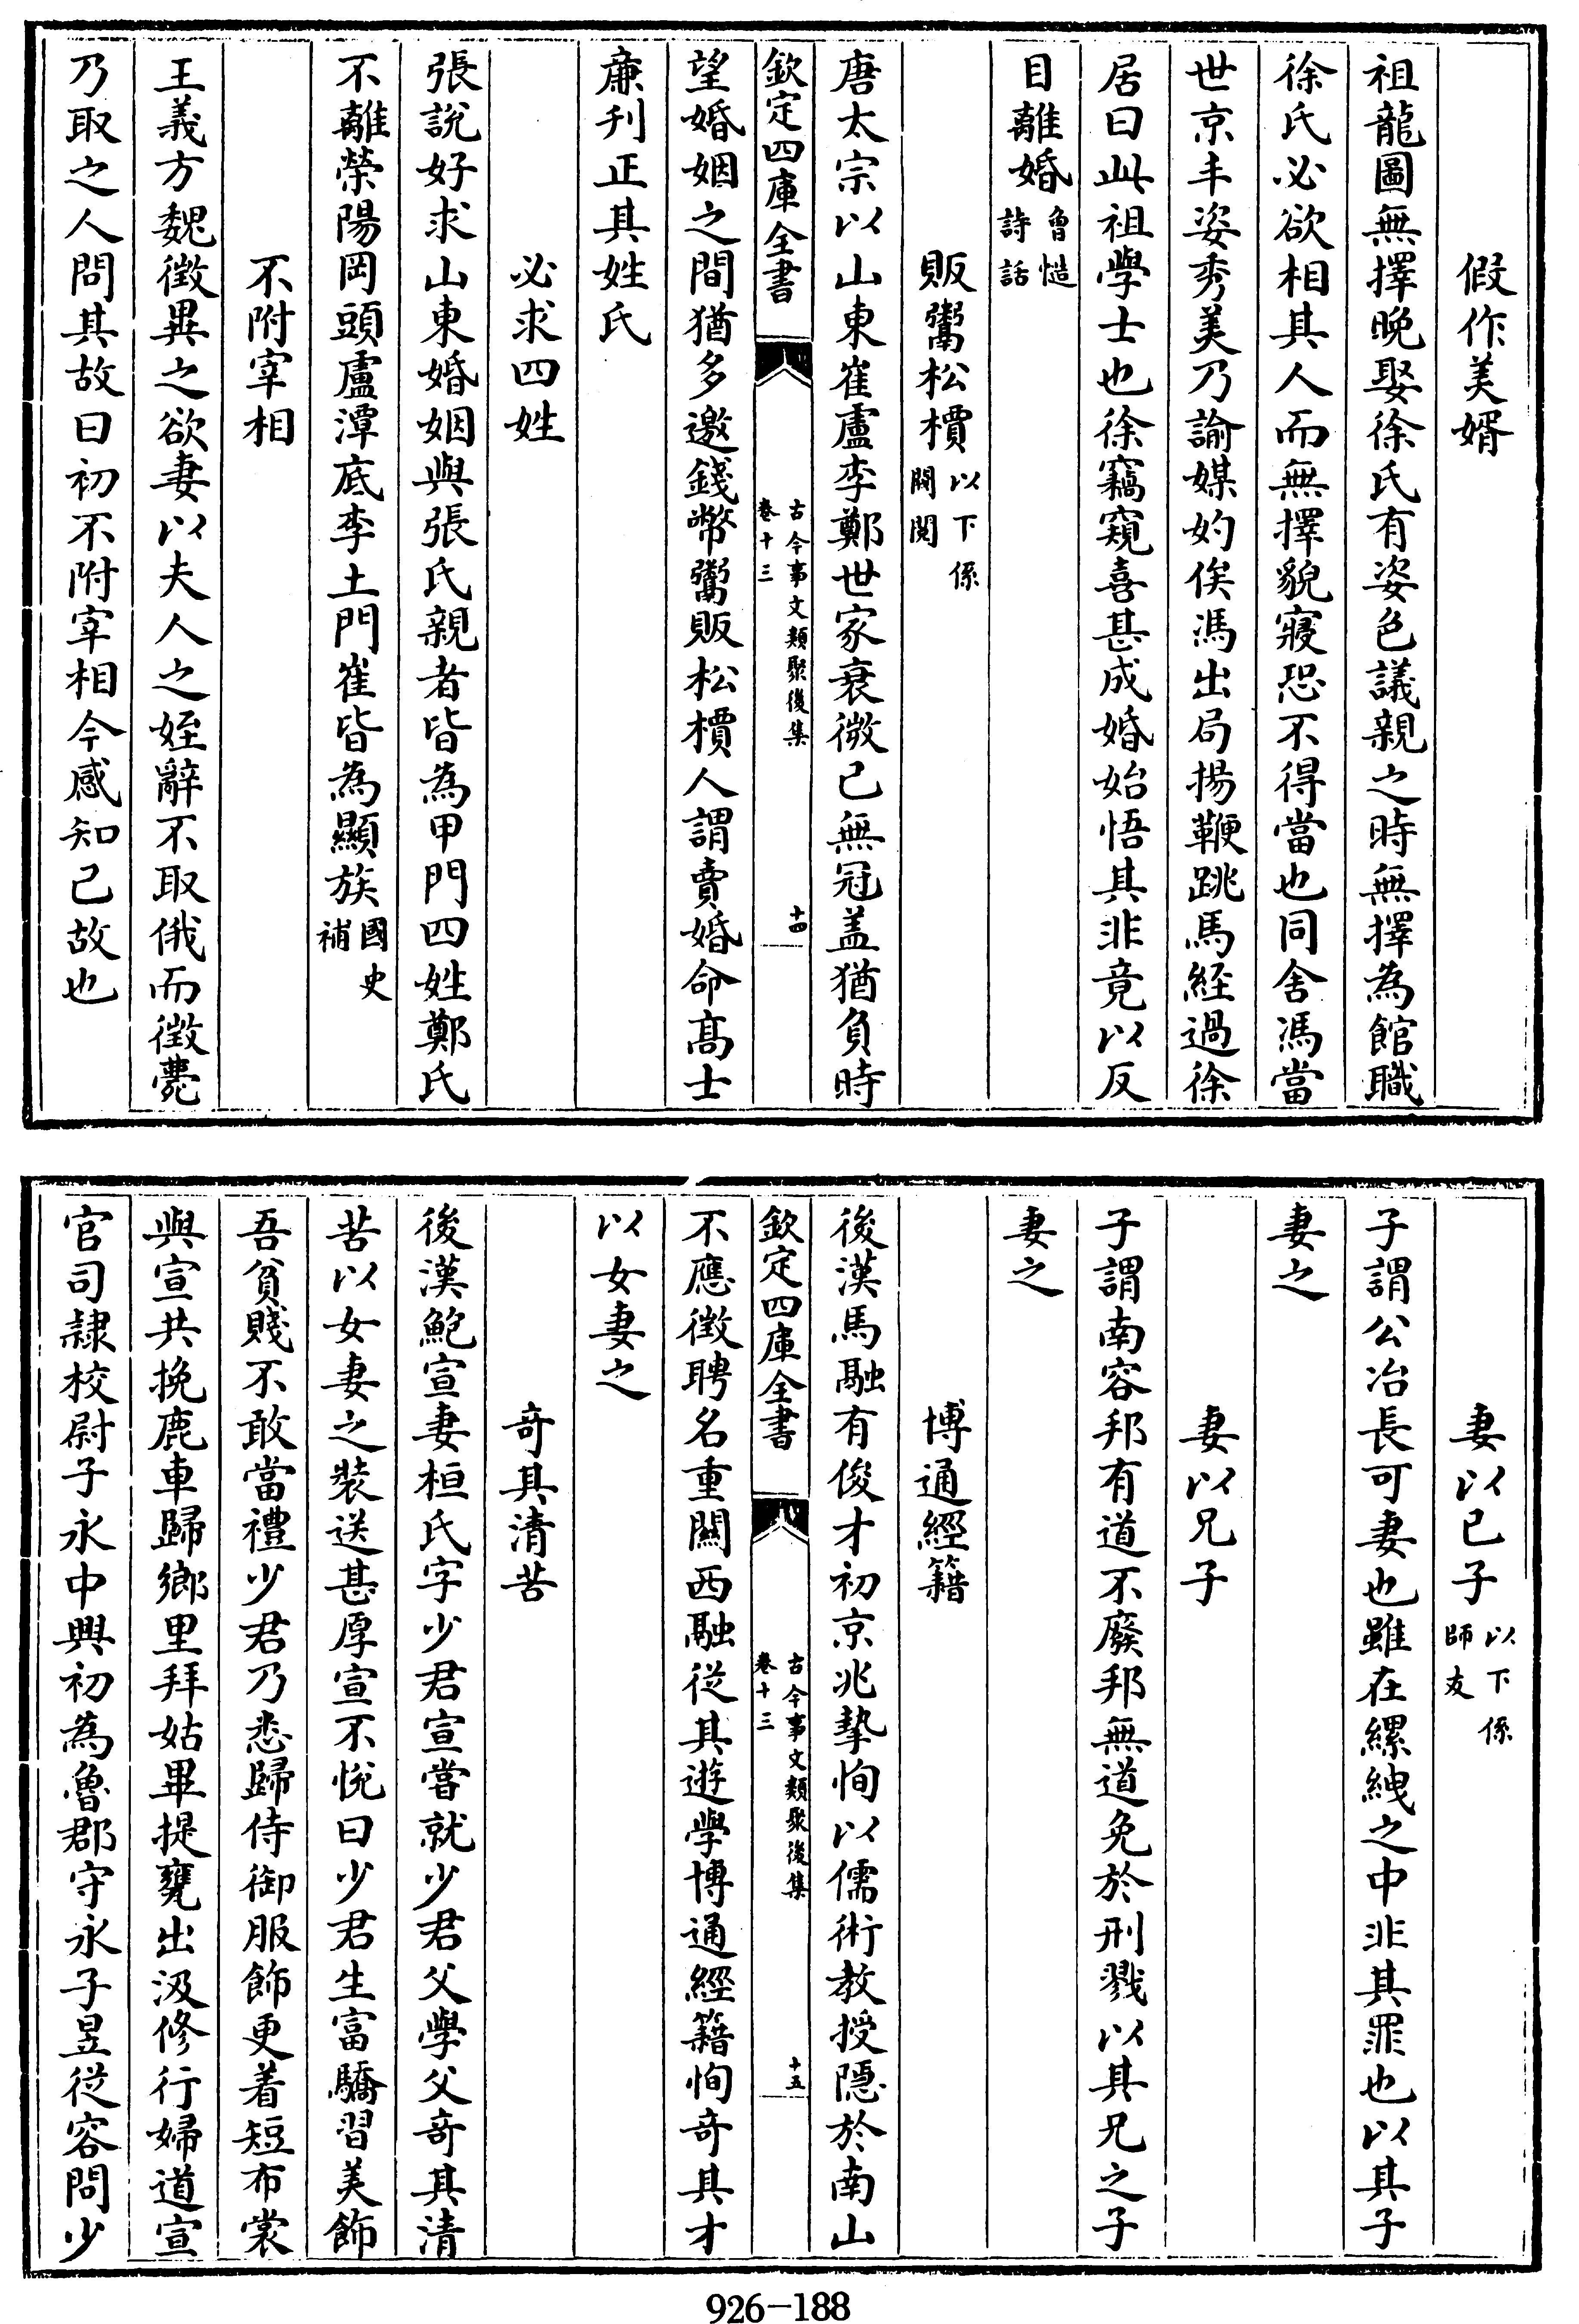 假作美婿
祖龍圖無擇晚娶徐氏有姿色議親之時無擇為館職
徐氏必欲相其人而無擇貌寢恐不得當也同舍馮當
世京丰姿秀美乃諭媒妁俟馮出局揚鞭跳馬經過徐
居曰此祖學士也徐竊窺喜甚成婚始悟其非竟以反
目離婚魯慥詩話
販鬻松檟以下係閥閱
唐太宗以山東崔盧李鄭世家衰微已無冠盖猶負時
欽定四庫全書 古今事文類聚後集 卷十三 十四
望婚姻之間猶多邀錢幣鬻販松檟人謂賣婚命高士
廉刋正其姓氏
必求四姓
張說好求山東婚姻與張氏親者皆為甲門四姓鄭氏
不離滎陽岡頭盧澤底李土門崔皆為顯族國史補
不附宰相
王義方魏徵異之欲妻以夫人之姪辭不取俄而徵薨
乃取之人問其故曰初不附宰相今感知己故也
妻以己子以下係師友
子謂公冶長可妻也雖在縲絏之中非其罪也以其子
妻之
妻以兄子
子謂南容邦有道不廢邦無道免於刑戮以其兄之子
妻之
博通經籍
後漢馬融有俊才初京兆摯恂以儒術教授隱於南山
欽定四庫全書 古今事文類聚後集 卷十三 十五
不應徵聘名重關西融從其遊學博通經籍恂奇其才
以女妻之
奇其清苦
後漢鮑宣妻桓氏字少君宣嘗就少君父學父奇其清
苦以女妻之裝送甚厚宣不悅曰少君生富驕習美飾
吾貧賤不敢當禮少君乃悉歸侍御服飾更着短布裳
與宣共挽鹿車歸鄉里拜姑畢提甕出汲修行婦道宣
官司隸校尉子永中興初為魯郡守永子昱從容問少
926-188